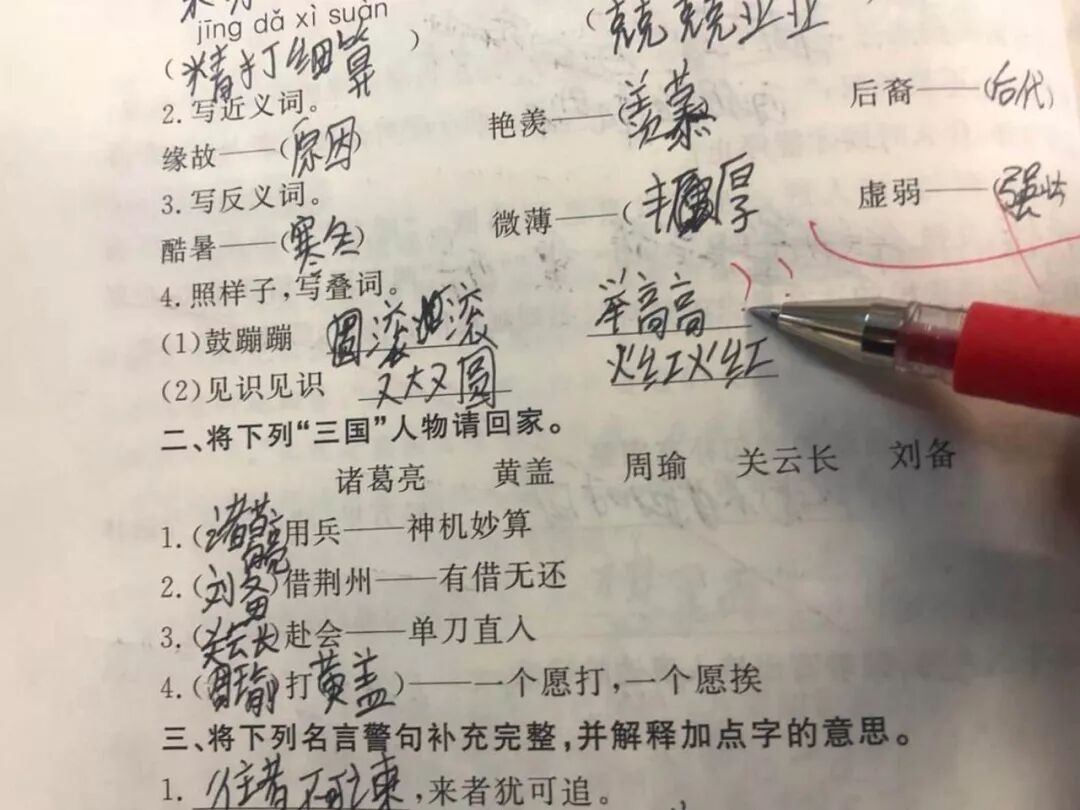 jīng dǎ xì suàn
(精打细算) (兢兢业业)
2.写近义词。
缘故——(原因) 艳羡——(羡慕) 后裔——(后代)
3.写反义词。
酷暑——(寒冬) 微薄——(丰厚) 虚弱——(强壮)
4.照样子,写叠词。
(1)鼓蹦蹦 圆滚滚 举高高
(2)见识见识 又大又圆 火红火红
二、将下列“三国”人物请回家。
诸葛亮 黄盖 周瑜 关云长 刘备
1.(诸葛亮)用兵——神机妙算
2.(刘备)借荆州——有借无还
3.(关云长)赴会——单刀直入
4.(周瑜)打(黄盖)——一个愿打,一个愿挨
三、将下列名言警句补充完整,并解释加点字的意思。
1.往者不可谏,来者犹可追。